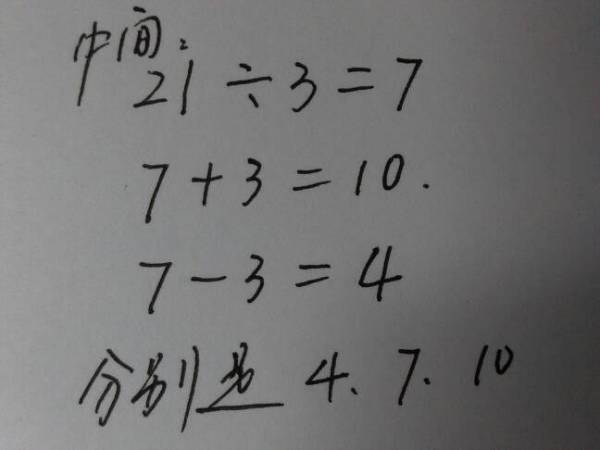 中间:
21÷3=7
7+3=10.
7-3=4
分别是 4、7、10